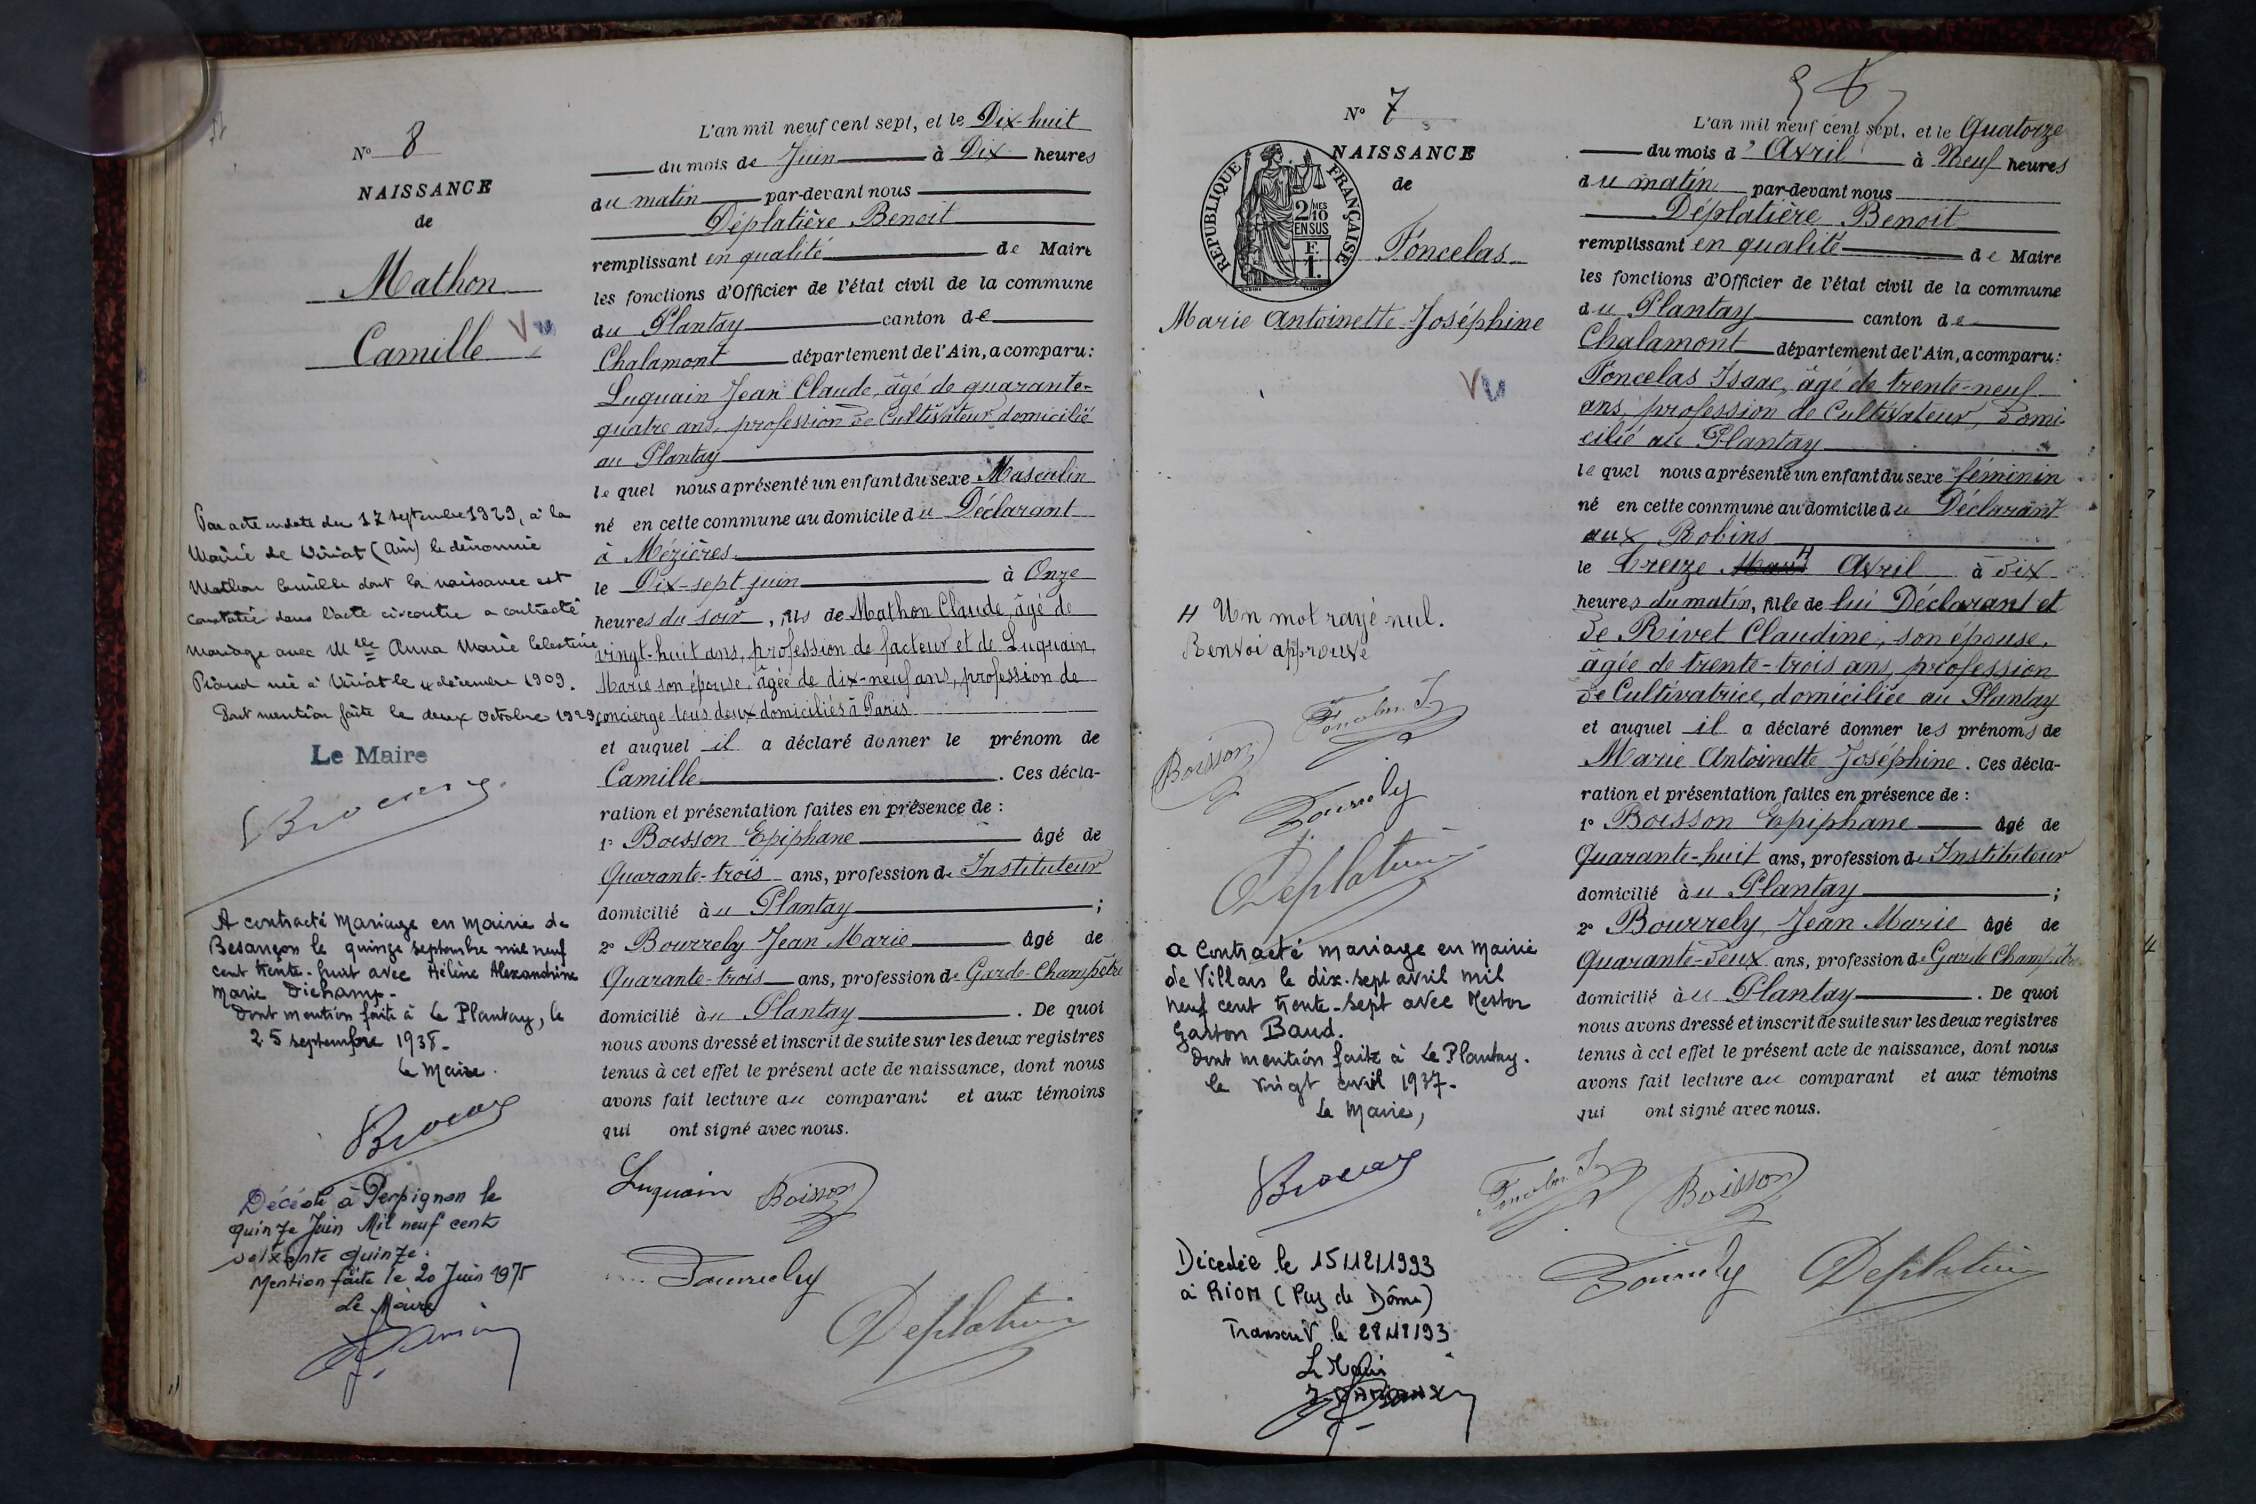 N° 8
NAISSANCE
de
Mathon
Camille
Vu
Par acte en date du 17 septembre 1929, à la
Mairie de Viriat (Ain) le dénommé
Mathon Camille dont la naissance est
constatée dans l'acte ci-contre a contracté
mariage avec Mlle Anna Marie Célestine
Piaud née à Viriat le 4 décembre 1909.
Dont mention faite le deux octobre 1929
Le Maire
Brocard
A contracté mariage en mairie de
Besançon le quinze septembre mil neuf
cent trente-huit avec Hélène Alexandrine
Marie Dichamp-
Dont mention faite à Le Plantay, le
25 septembre 1938-
Le Maire.
Décédé à Perpignan le
quinze Juin Mil neuf cent
soixante quinze.
Mention faite le 20 Juin 1975
Le Maire
L'an mil neuf cent sept, et le Dix-huit
du mois de Juin à Dix heures
du matin par-devant nous
Déplatière Benoit
remplissant en qualité de Maire
les fonctions d'Officier de l'état civil de la commune
du Plantay canton de
Chalamont département de l'Ain, a comparu:
Luquain Jean Claude, âgé de quarante-
quatre ans, profession de Cultivateur domicilié
au Plantay
le quel nous a présenté un enfant du sexe Masculin
né en cette commune au domicile du Déclarant
à Mézières
le Dix-sept juin à Onze
heures du soir, fils de Mathon Claude, âgé de
vingt-huit ans, profession de facteur et de Luquain,
Marie son épouse, âgée de dix-neuf ans, profession de
concierge tous deux domiciliés à Paris
et auquel il a déclaré donner le prénom de
Camille. Ces décla-
ration et présentation faites en présence de:
1° Boisson Epiphane âgé de
Quarante-trois ans, profession de Instituteur
domicilié au Plantay;
2° Bourrely Jean Marie âgé de
Quarante-trois ans, profession de Garde-Champêtre
domicilié au Plantay. De quoi
nous avons dressé et inscrit de suite sur les deux registres
tenus à cet effet le présent acte de naissance, dont nous
avons fait lecture au comparant et aux témoins
qui ont signé avec nous.
Luquain Boisson
Bourrely
Déplatière
N° 7
NAISSANCE
de
REPUBLIQUE FRANÇAISE
2/10 MES
EN SUS
F.
1.
Foncelas
Marie Antoinette Joséphine
Vu
H Un mot rayé nul.
Renvoi approuvé
Foncelas I
Boisson
Bourrely
Déplatière
a Contracté mariage en Mairie
de Villars le dix-sept avril mil
neuf cent trente-sept avec Nestor
Gaston Baud.
Dont mention faite à Le Plantay.
le vingt avril 1937-
Le Maire,
Brocard
Décedée le 15/12/1993
à RIOM (Puy de Dôme)
Transcrit le 28/12/93
Le Maire
L'an mil neuf cent sept, et le Quatorze
du mois d'Avril à Neuf heures
du matin par-devant nous
Déplatière Benoit
remplissant en qualité de Maire
les fonctions d'Officier de l'état civil de la commune
du Plantay canton de
Chalamont département de l'Ain, a comparu:
Foncelas Isaac, âgé de trente-neuf
ans, profession de Cultivateur, domi-
cilié au Plantay
le quel nous a présenté un enfant du sexe féminin
né en cette commune au domicile du Déclarant
aux Robins
le treize Mars H Avril à dix
heures du matin, fille de lui Déclarant et
de Rivet Claudine, son épouse,
âgée de trente-trois ans, profession
de Cultivatrice, domiciliée au Plantay
et auquel il a déclaré donner les prénoms de
Marie Antoinette Joséphine. Ces décla-
ration et présentation faites en présence de:
1° Boisson Epiphane âgé de
Quarante-huit ans, profession de Instituteur
domicilié au Plantay;
2° Bourrely Jean Marie âgé de
Quarante-deux ans, profession de Garde Champêtre
domicilié au Plantay. De quoi
nous avons dressé et inscrit de suite sur les deux registres
tenus à cet effet le présent acte de naissance, dont nous
avons fait lecture au comparant et aux témoins
qui ont signé avec nous.
Foncelas I Boisson
Bourrely Déplatière